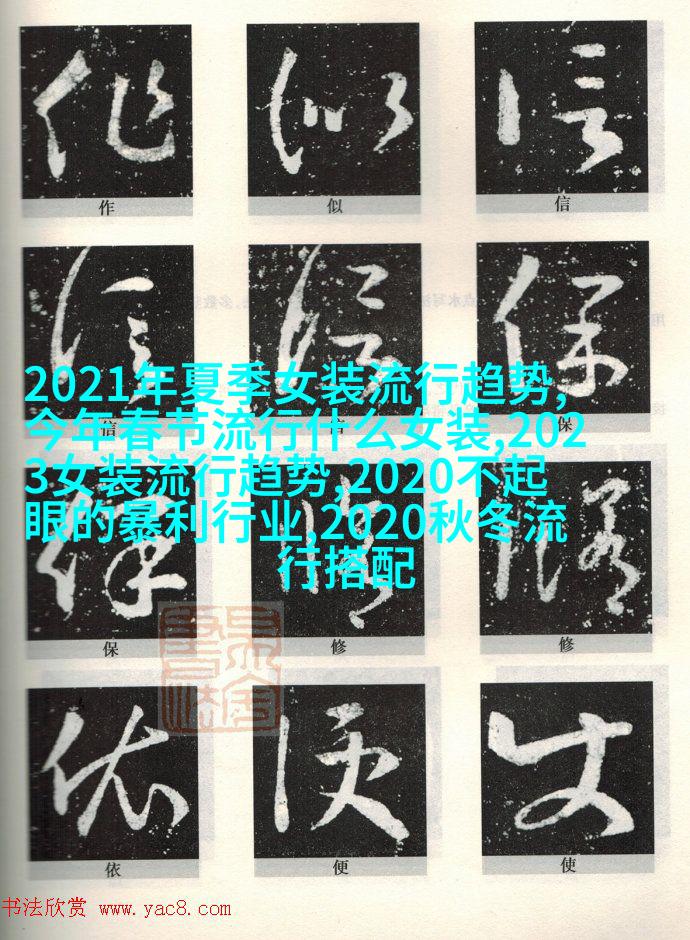 作 似 信
信 信 保
2021年夏季女装流行趋势,
今年春节流行什么女装,202
3女装流行趋势,2020不起
眼的暴利行业,2020秋冬流
行搭配
保 修 修
依 便 使
书法欣赏 www.yac8.com